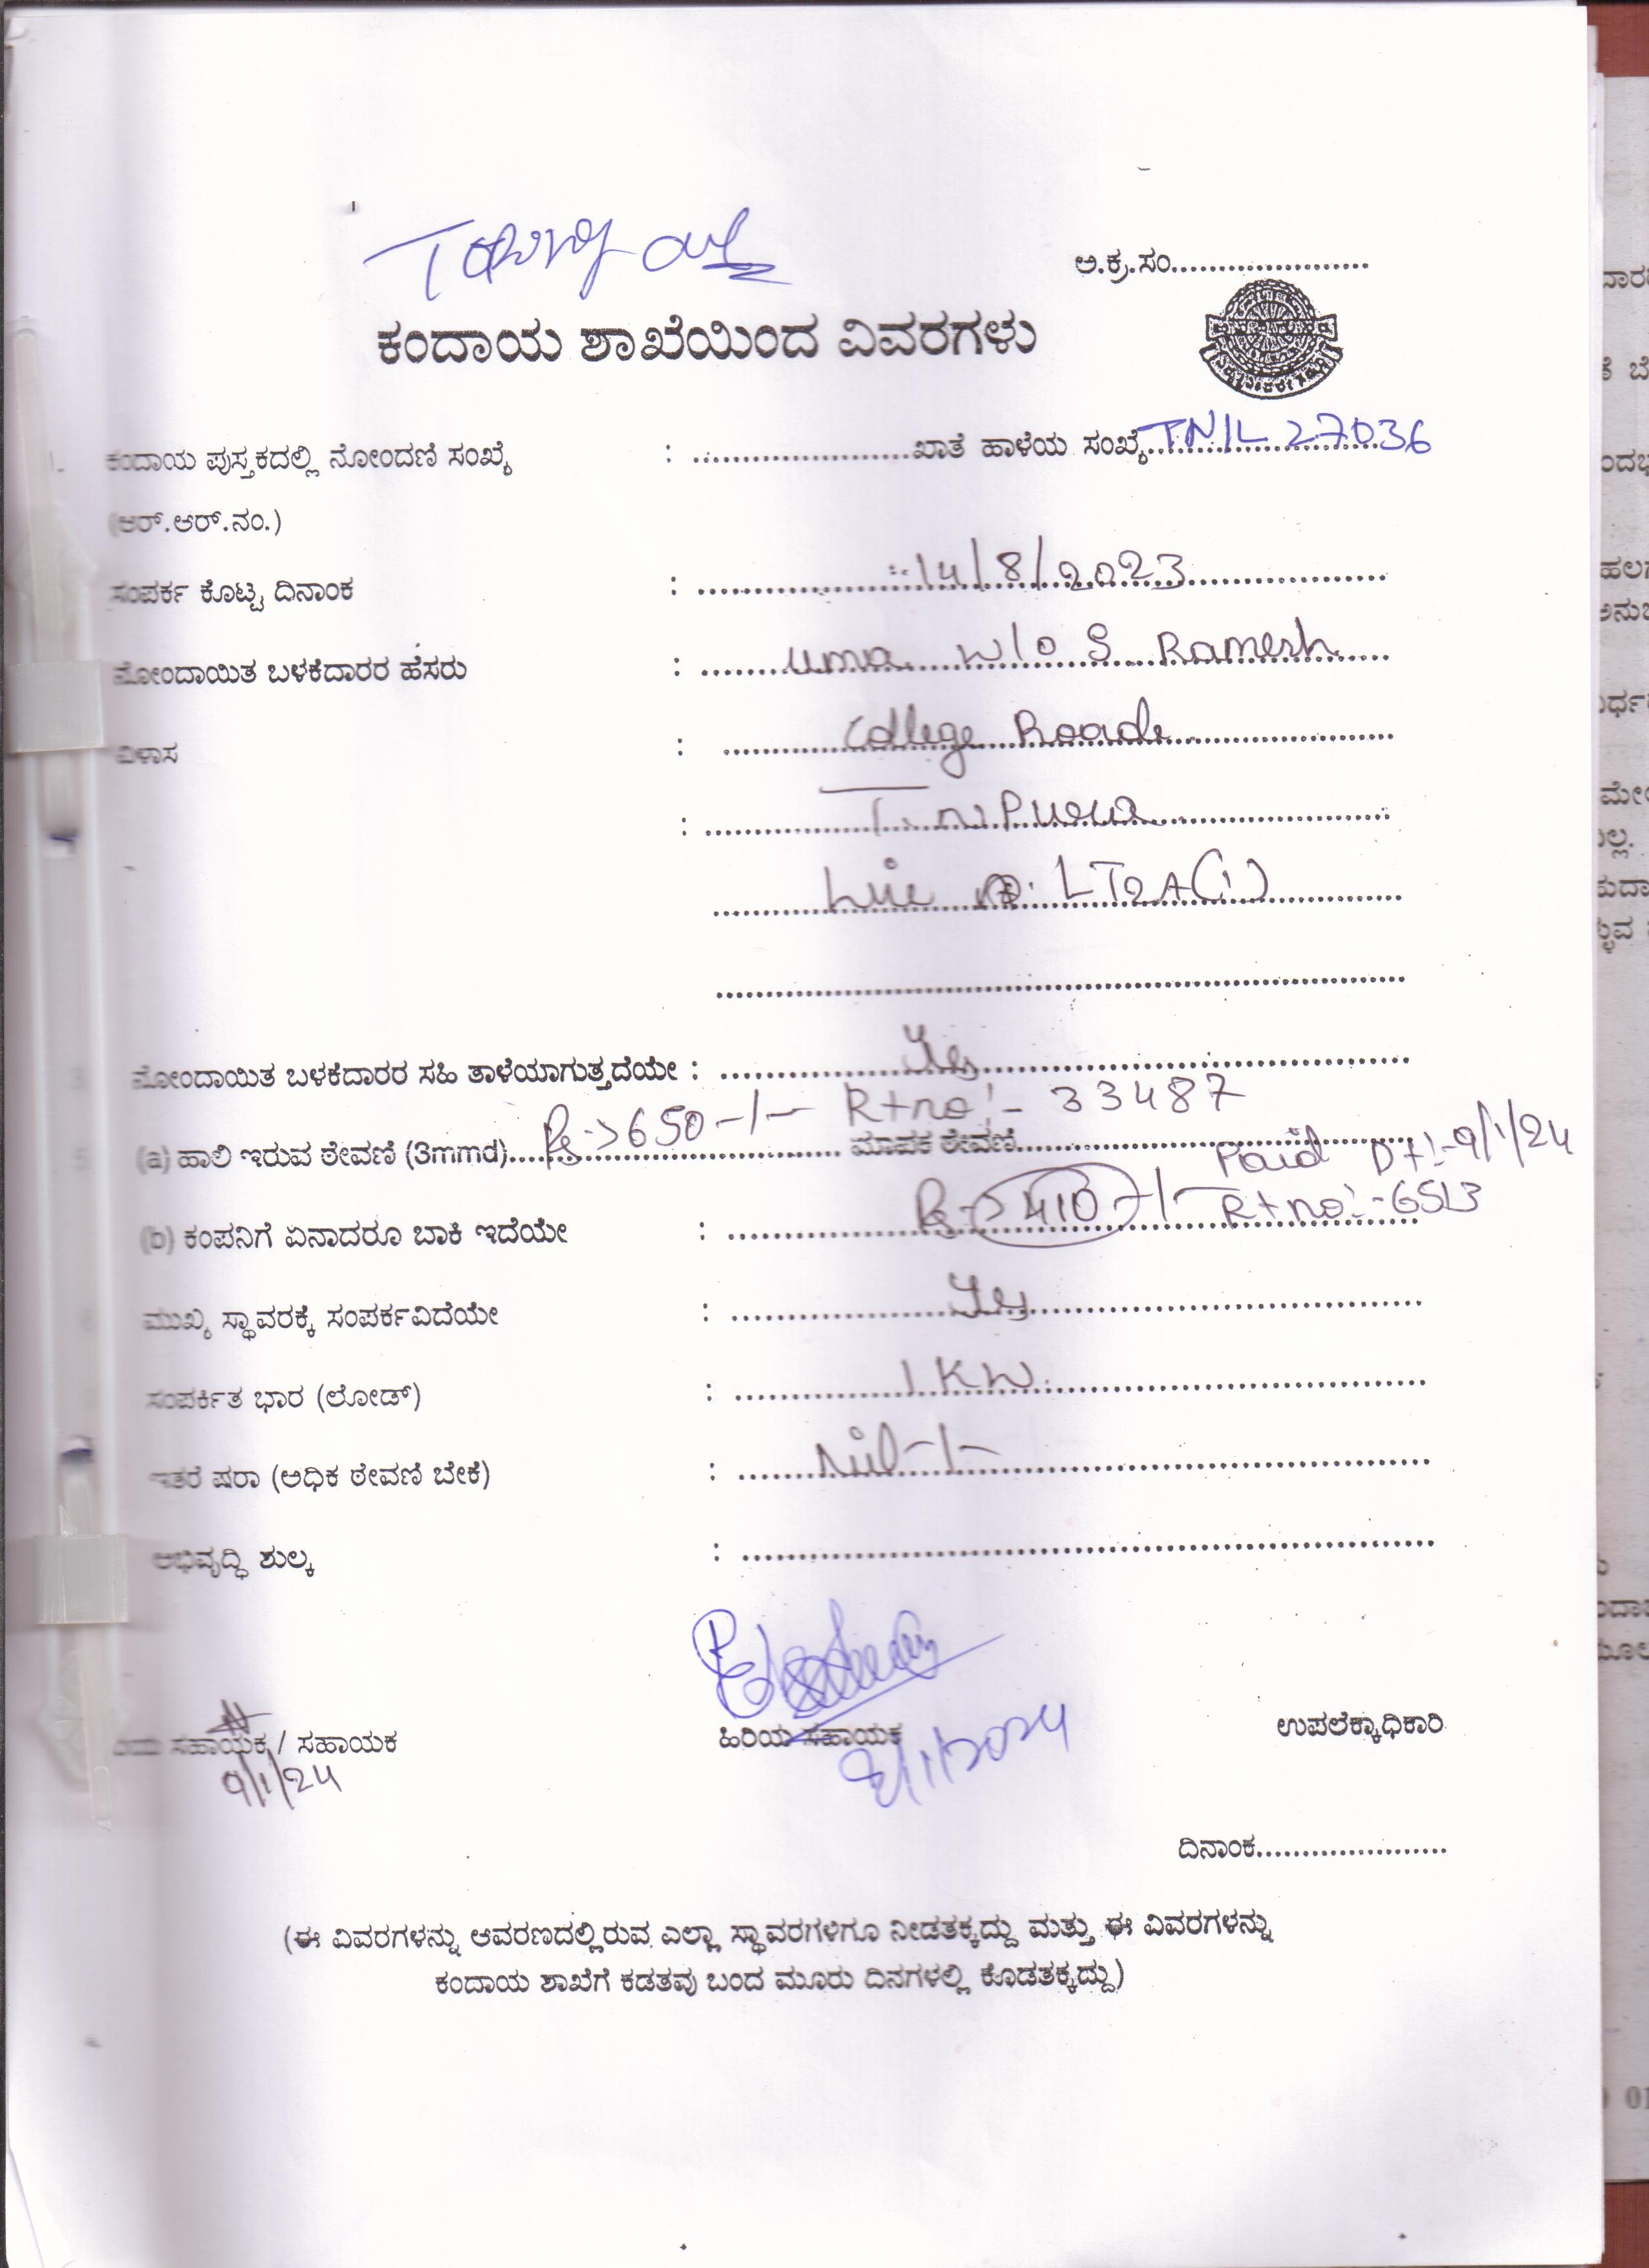 ಅ.ಕ್ರ.ಸಂ......................
ಕಂದಾಯ ಶಾಖೆಯಿಂದ ವಿವರಗಳು
ಕಂದಾಯ ಪುಸ್ತಕದಲ್ಲಿ ನೋಂದಣಿ ಸಂಖ್ಯೆ : ........................ಖಾತೆ ಹಾಳೆಯ ಸಂಖ್ಯೆ TNIL 27036
(ಆರ್.ಆರ್.ನಂ.)
ಸಂಪರ್ಕ ಕೊಟ್ಟ ದಿನಾಂಕ : 14/8/2023
ನೋಂದಾಯಿತ ಬಳಕೆದಾರರ ಹೆಸರು : uma w/o S Ramesh
ವಿಳಾಸ : College Roade
:
LT2A(1)
ನೋಂದಾಯಿತ ಬಳಕೆದಾರರ ಸಹಿ ತಾಳೆಯಾಗುತ್ತದೆಯೇ : Yes
R+no:- 33487
(a) ಹಾಲಿ ಇರುವ ಠೇವಣಿ (3mmd) Rs->650-/- ಮಾಪಕ ಠೇವಣಿ
Paid D+:-9/1/24
(b) ಕಂಪನಿಗೆ ಏನಾದರೂ ಬಾಕಿ ಇದೆಯೇ : Rs->410-/- R+no:-6513
ಮುಖ್ಯ ಸ್ಥಾವರಕ್ಕೆ ಸಂಪರ್ಕವಿದೆಯೇ : Yes
ಸಂಪರ್ಕಿತ ಭಾರ (ಲೋಡ್) : 1KW
ಇತರೆ ಷರಾ (ಅಧಿಕ ಠೇವಣಿ ಬೇಕೆ) : Nil-/-
ಅಭಿವೃದ್ಧಿ ಶುಲ್ಕ :
ಸಹಾಯಕ / ಸಹಾಯಕ ಹಿರಿಯ ಸಹಾಯಕ ಉಪಲೆಕ್ಕಾಧಿಕಾರಿ
9/1/24 9/1/2024
ದಿನಾಂಕ......................
(ಈ ವಿವರಗಳನ್ನು ಆವರಣದಲ್ಲಿರುವ ಎಲ್ಲಾ ಸ್ಥಾವರಗಳಿಗೂ ನೀಡತಕ್ಕದ್ದು ಮತ್ತು ಈ ವಿವರಗಳನ್ನು
ಕಂದಾಯ ಶಾಖೆಗೆ ಕಡತವು ಬಂದ ಮೂರು ದಿನಗಳಲ್ಲಿ ಕೊಡತಕ್ಕದ್ದು)